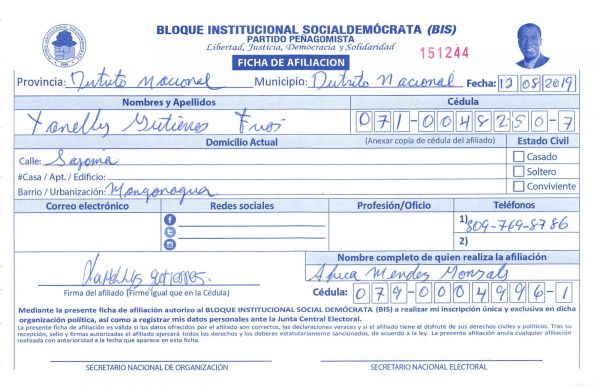 BLOQUE INSTITUCIONAL SOCIALDEMÓCRATA (BIS)
PARTIDO PEÑAGOMISTA
Libertad, Justicia, Democracia y Solidaridad
FICHA DE AFILIACION
151244
Provincia: Distrito Nacional Municipio: Distrito Nacional Fecha: 12 08 2019
Nombres y Apellidos Cédula
Yanelly Gutierres 071-0048250-7
Domicilio Actual (Anexar copia de cédula del afiliado) Estado Civil
Calle: Casado
#Casa / Apt. / Edificio: Soltero
Barrio / Urbanización: Conviviente
Correo electrónico Redes sociales Profesión/Oficio Teléfonos
1) 809-769-8786
2)
Nombre completo de quien realiza la afiliación
Mendez
Firma del afiliado (Firme igual que en la Cédula) Cédula: 079-0004996-1
Mediante la presente ficha de afiliación autorizo al BLOQUE INSTITUCIONAL SOCIAL DEMÓCRATA (BIS) a realizar mi inscripción única y exclusiva en dicha
organización política, así como a registrar mis datos personales ante la Junta Central Electoral.
La presente ficha de afiliación es válida si los datos ofrecidos por el afiliado son correctos, las declaraciones veraces y si el afiliado tiene el disfrute de sus derechos civiles y políticos. Tras su
recepción, sello y firmas autorizadas el afiliado ejercerá todos los derechos y los deberes estatutariamente sancionados, de acuerdo a la ley. La presente afiliación anula cualquier afiliación
realizada con anterioridad a la fecha que aparece en esta ficha.
SECRETARIO NACIONAL DE ORGANIZACIÓN SECRETARIO NACIONAL ELECTORAL